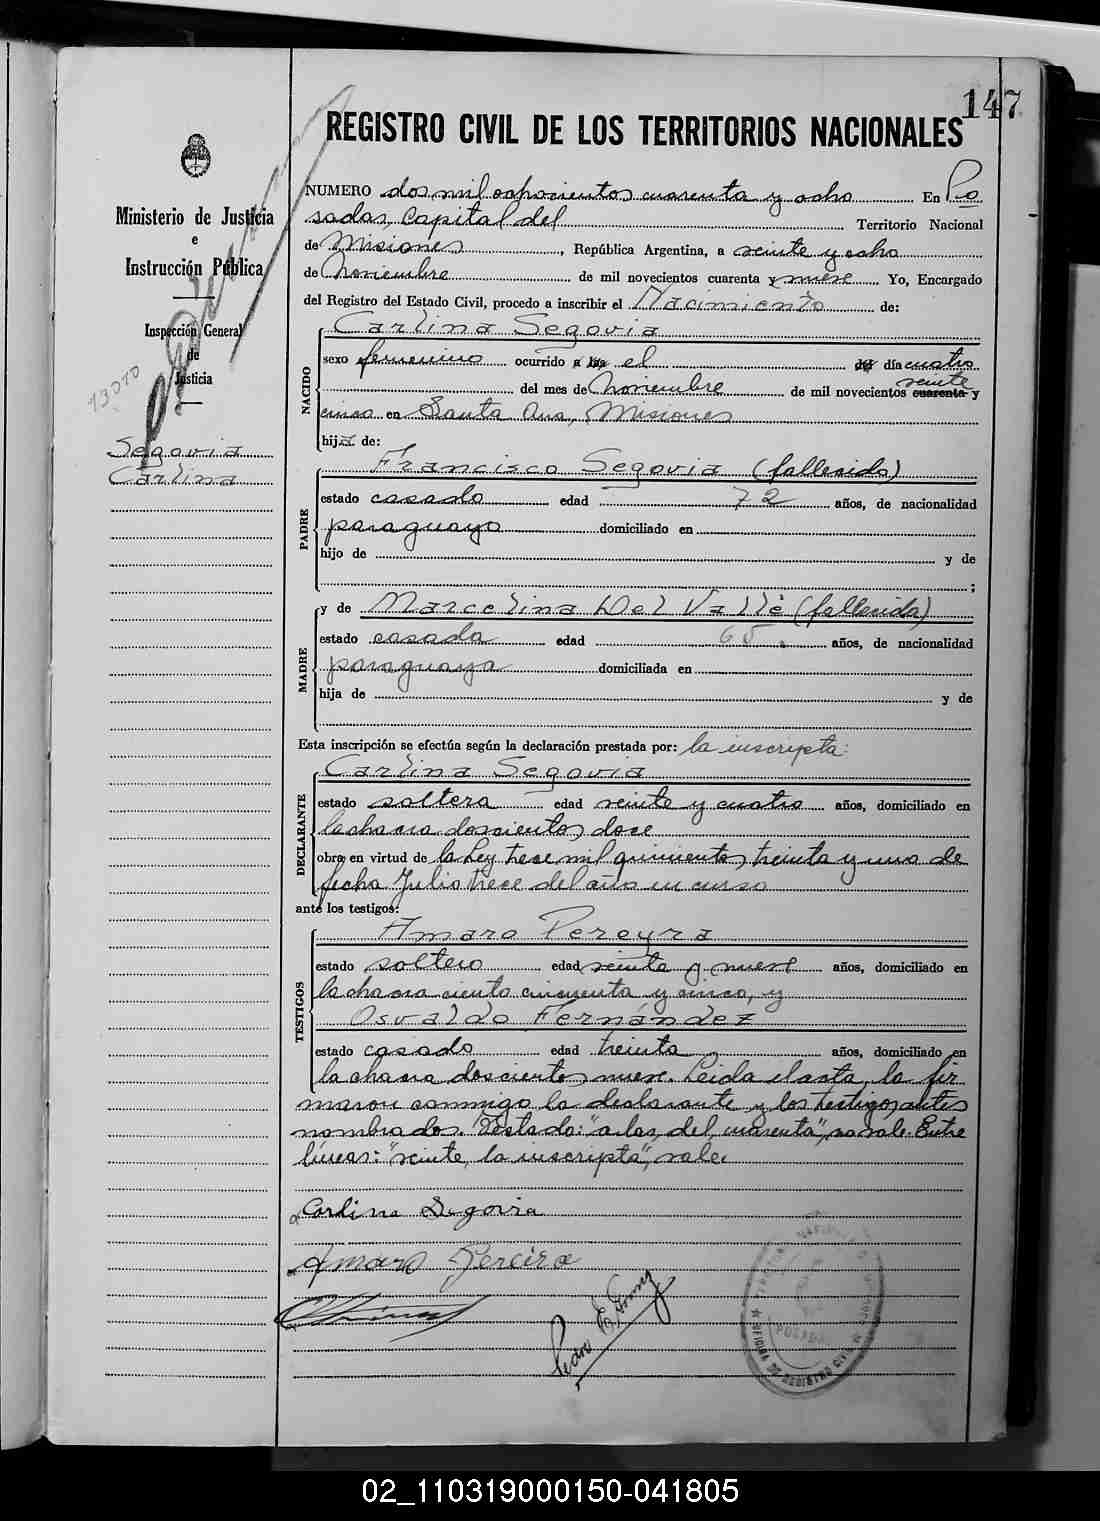 147
REGISTRO CIVIL DE LOS TERRITORIOS NACIONALES
Ministerio de Justicia
e
Instrucción Pública
Inspección General
de
Justicia
13070
Segovia
Carlina
NUMERO dos mil ochocientos cuarenta y ocho En Po
sadas, Capital del Territorio Nacional
de Misiones, República Argentina, a veinte y ocho
de Noviembre de mil novecientos cuarenta y nueve Yo, Encargado
del Registro del Estado Civil, procedo a inscribir el Nacimiento de:
NACIDO
Carlina Segovia
sexo femenino ocurrido a las el del día cuatro
del mes de Noviembre de mil novecientos cuarenta veinte y
cinco en Santa Ana, Misiones
hija de:
PADRE
Francisco Segovia (fallecido)
estado casado edad 72 años, de nacionalidad
paraguayo domiciliado en
hijo de y de
;
MADRE
y de Marcelina Del Valle (fallecida)
estado casada edad 65 años, de nacionalidad
paraguaya domiciliada en
hija de y de
Esta inscripción se efectúa según la declaración prestada por: la inscripta:
DECLARANTE
Carlina Segovia
estado soltera edad veinte y cuatro años, domiciliado en
la chacra doscientos doce
obra en virtud de la Ley trece mil quinientos treinta y uno de
fecha Julio trece del año en curso
ante los testigos:
TESTIGOS
Amaro Pereyra
estado soltero edad veinte y nueve años, domiciliado en
la chacra ciento cincuenta y cinco, y
Osvaldo Fernández
estado casado edad treinta años, domiciliado en
la chacra doscientos nueve. Leida el acta, la fir
maron conmigo la declarante y los testigos antes
nombrados. Testado: "a las, del, cuarenta", no vale. Entre
líneas: "veinte, la inscripta", vale.
Carlina Segovia
Amaro Pereira
OFICINA DE REGISTRO CIVIL
POSADAS
02_110319000150-041805